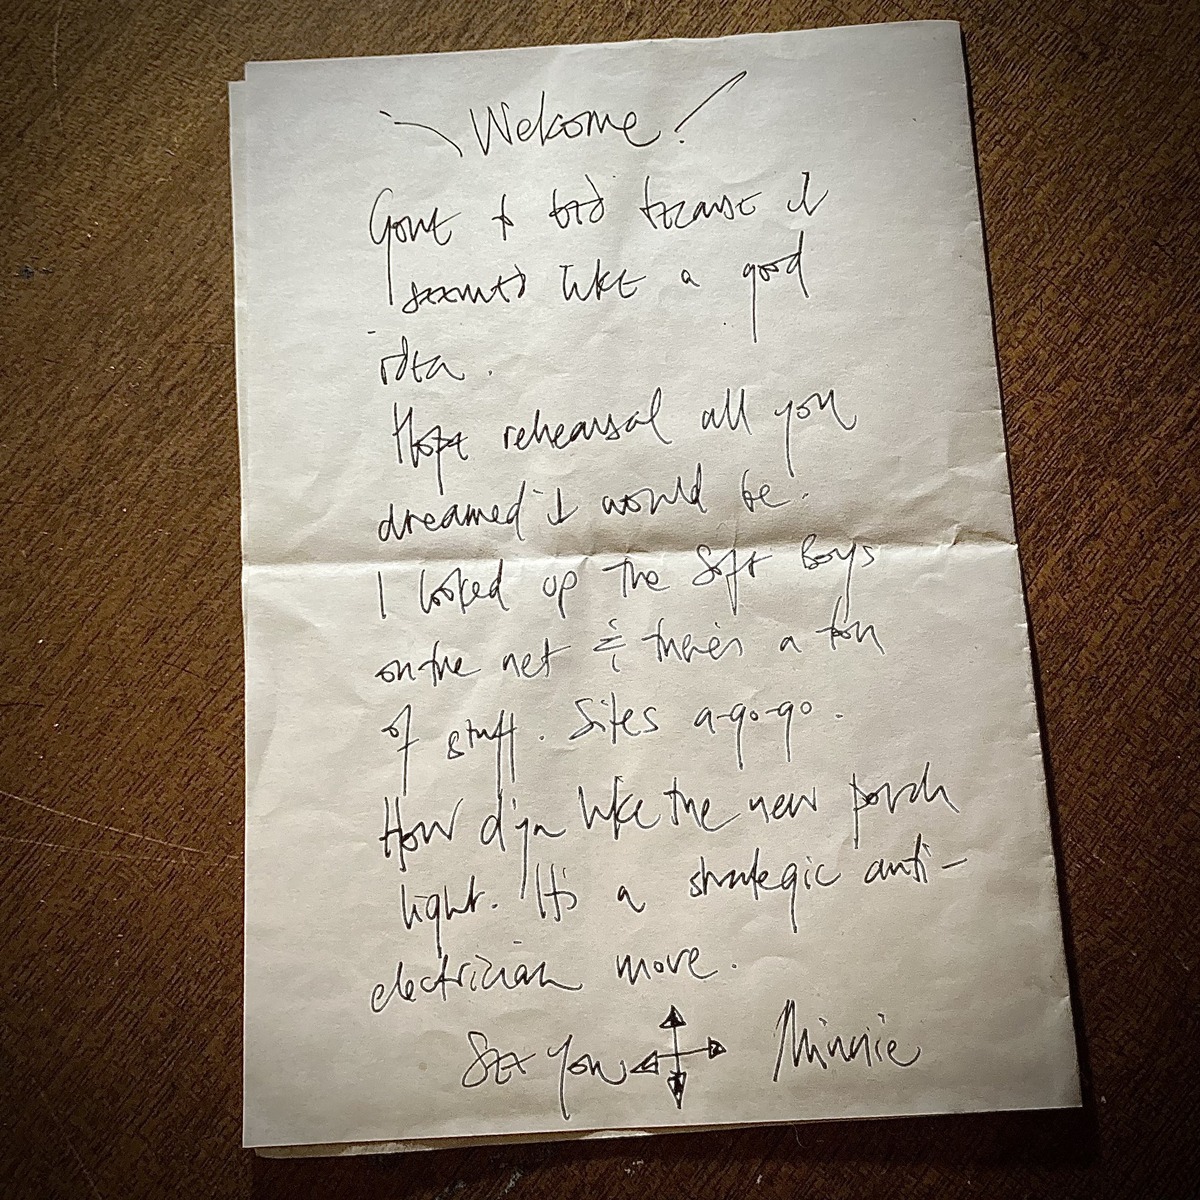 Welcome!
Gone to bed because it
seemed like a good
idea.
Hope rehearsal all you
dreamed it would be.
I looked up the Soft Boys
on the net & there's a ton
of stuff. Sites a-go-go.
How d'ya like the new porch
light. It's a strategic anti-
electrician move.
See you Minnie